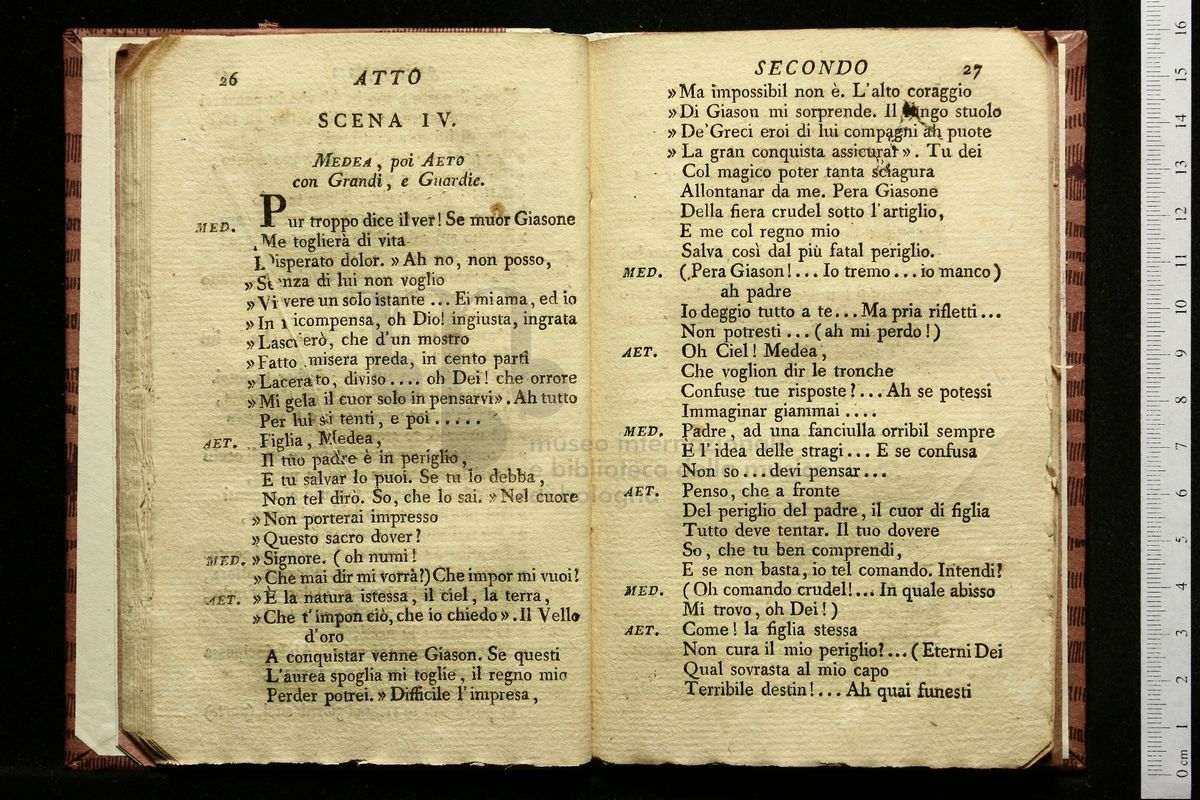 26 ATTO
SCENA IV.
MEDEA, poi AETO
con Grandi, e Guardie.
MED. Pur troppo dice il ver! Se muor Giasone
Me toglierà di vita
Disperato dolor. »Ah no, non posso,
»Senza di lui non voglio
»Vivere un solo istante ... Ei mi ama, ed io
»In ricompensa, oh Dio! ingiusta, ingrata
»Lascierò, che d'un mostro
»Fatto misera preda, in cento parti
»Lacerato, diviso .... oh Dei! che orrore
»Mi gela il cuor solo in pensarvi». Ah tutto
Per lui si tenti, e poi .....
AET. Figlia, Medea,
Il tuo padre è in periglio,
E tu salvar lo puoi. Se tu lo debba,
Non tel dirò. So, che lo sai. »Nel cuore
»Non porterai impresso
»Questo sacro dover?
MED. »Signore. (oh numi!
»Che mai dir mi vorrà?) Che impor mi vuoi?
AET. »È la natura istessa, il ciel, la terra,
»Che t'impon ciò, che io chiedo». Il Vello
d'oro
A conquistar venne Giason. Se questi
L'aurea spoglia mi toglie, il regno mio
Perder potrei. »Difficile l'impresa,
SECONDO 27
»Ma impossibil non è. L'alto coraggio
»Di Giason mi sorprende. Il lungo stuolo
»De'Greci eroi di lui compagni ah puote
»La gran conquista assicurar». Tu dei
Col magico poter tanta sciagura
Allontanar da me. Pera Giasone
Della fiera crudel sotto l'artiglio,
E me col regno mio
Salva così dal più fatal periglio.
MED. (Pera Giason!... Io tremo... io manco)
ah padre
Io deggio tutto a te... Ma pria rifletti...
Non potresti ... (ah mi perdo!)
AET. Oh Ciel! Medea,
Che voglion dir le tronche
Confuse tue risposte?... Ah se potessi
Immaginar giammai ....
MED. Padre, ad una fanciulla orribil sempre
È l'idea delle stragi... E se confusa
Non so... devi pensar...
AET. Penso, che a fronte
Del periglio del padre, il cuor di figlia
Tutto deve tentar. Il tuo dovere
So, che tu ben comprendi,
E se non basta, io tel comando. Intendi?
MED. (Oh comando crudel!... In quale abisso
Mi trovo, oh Dei!)
AET. Come! la figlia stessa
Non cura il mio periglio?... (Eterni Dei
Qual sovrasta al mio capo
Terribile destin!... Ah quai funesti
museo internazionale
e biblioteca della musica
di bologna
0 cm 1 2 3 4 5 6 7 8 9 10 11 12 13 14 15 16